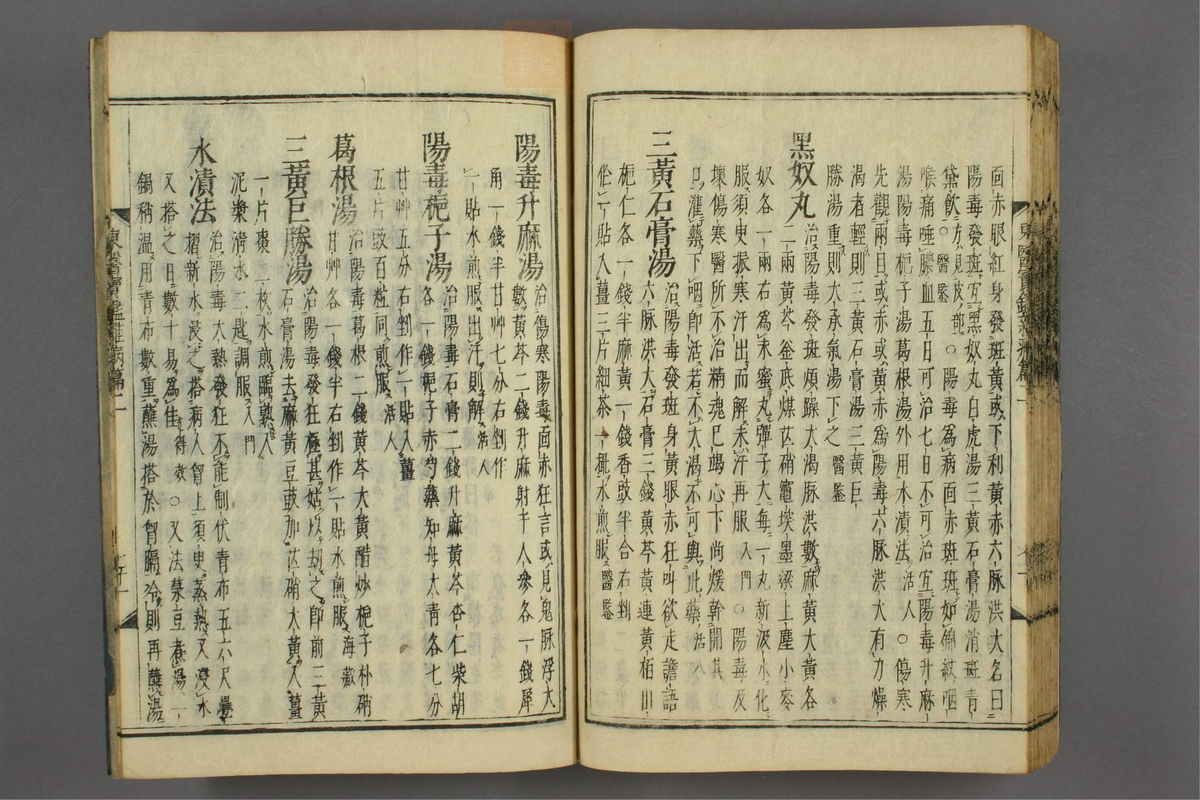 面赤眼紅身發斑黃或下利黃赤六脉洪大名曰
陽毒發斑宜黑奴丸白虎湯三黃石膏湯消斑青
黛飲方見皮部 醫鑑 ○陽毒爲病面赤斑斑如錦紋咽
喉痛唾膿血五日可治七日不可治宜陽毒升麻
湯陽毒梔子湯葛根湯外用水漬法 活人 ○傷寒
先觀兩目或赤或黃赤爲陽毒六脉洪大有力燥
渴者輕則三黃石膏湯三黃巨
勝湯重則大承氣湯下之 醫鑑
黑奴丸 治陽毒發斑煩躁大渴脉洪數麻黃大黃各
二兩黃芩釜底煤芒硝竈突墨梁上塵小麥
奴各一兩右爲末蜜丸彈子大每一丸新汲水化
服須臾振寒汗出而解未汗再服 入門 ○陽毒及
壞傷寒醫所不治精魂已竭心下尚煖斡開其
口灌藥下咽卽活若不大渴不可與此藥 活人
三黃石膏湯 治陽毒發斑身黃眼赤狂叫欲走譫語
六脉洪大石膏三錢黃芩黃連黃栢山
梔仁各一錢半麻黃一錢香豉半合右剉
作一貼入薑三片細茶一撮水煎服 醫鑑
陽毒升麻湯 治傷寒陽毒面赤狂言或見鬼脉浮大
數黃芩二錢升麻射干人參各一錢犀
角一錢半甘艸七分右剉作
一貼水煎服出汗則解 活人
陽毒梔子湯 治陽毒石膏二錢升麻黃芩杏仁柴胡
各一錢梔子赤芍藥知母大青各七分
甘艸五分右剉作一貼入薑
五片豉百粒同煎服 活人
葛根湯 治陽毒葛根二錢黃芩大黃醋炒梔子朴硝
甘艸各一錢半右剉作一貼水煎服 海藏
三黃巨勝湯 治陽毒發狂極甚姑以劫之卽前三黃
石膏湯去麻黃豆豉加芒硝大黃入薑
一片棗二枚水煎臨熟入
泥漿清水二匙調服 入門
水漬法 治陽毒太熱發狂不能制伏青布五六尺疊
摺新水浸之搭病人胷上須臾蒸熱又浸水
又搭之日數十易爲佳 得效 ○又法菉豆煮湯一
鍋稍温用青布數重蘸湯搭於胷膈冷則再蘸湯